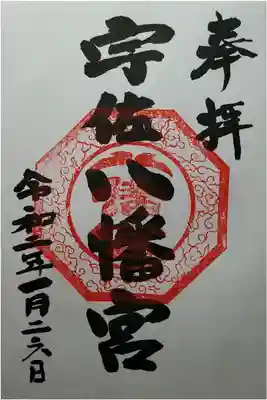 奉拝
宇佐八幡宮
令和二年一月二六日